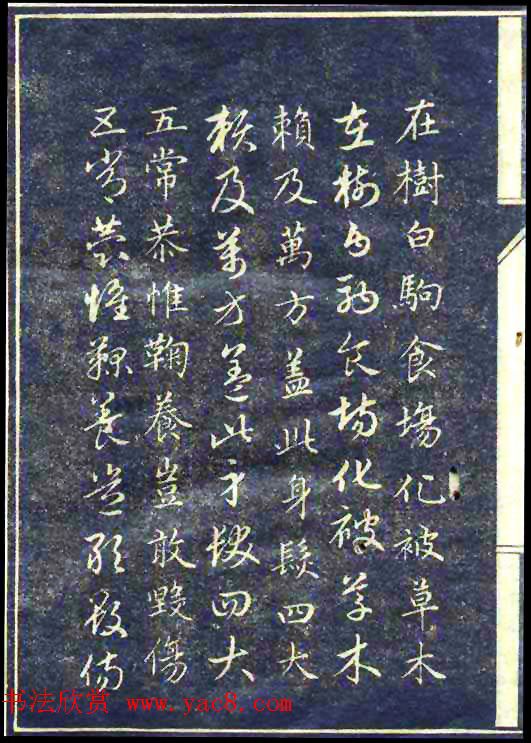 在樹白駒食塲化被草木
在樹白駒食場化被草木
賴及萬方蓋此身髮四大
賴及萬方蓋此身髮四大
五常恭惟鞠養豈敢毀傷
五常恭惟鞠養豈敢毀傷
书法欣赏 www.yac8.com